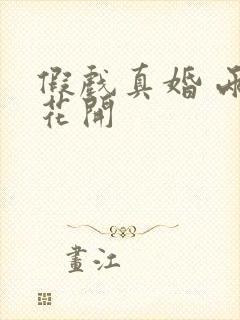 假戲真婚
花開
畫江